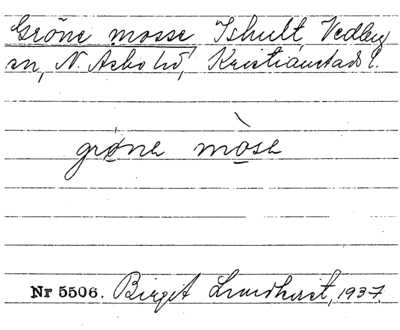 Gröne mosse Ishult Vedby
sn, N. Åsbo hd, Kristianstads l.
grøne mòse
Nr 5506. Birgit Lundhurst, 1937.